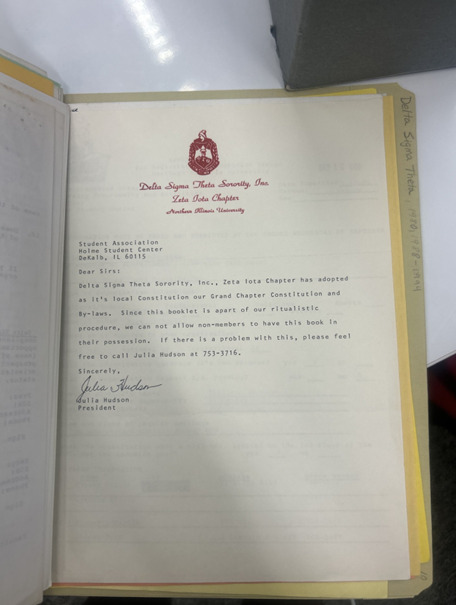 Delta Sigma Theta Sorority, Inc.
Zeta Iota Chapter
Northern Illinois University
Student Association
Holme Student Center
DeKalb, IL 60115
Dear Sirs:
Delta Sigma Theta Sorority, Inc., Zeta Iota Chapter has adopted
as it's local Constitution our Grand Chapter Constitution and
By-laws. Since this booklet is apart of our ritualistic
procedure, we can not allow non-members to have this book in
their possession. If there is a problem with this, please feel
free to call Julia Hudson at 753-3716.
Sincerely,
Julia Hudson
Julia Hudson
President
Delta Sigma Theta